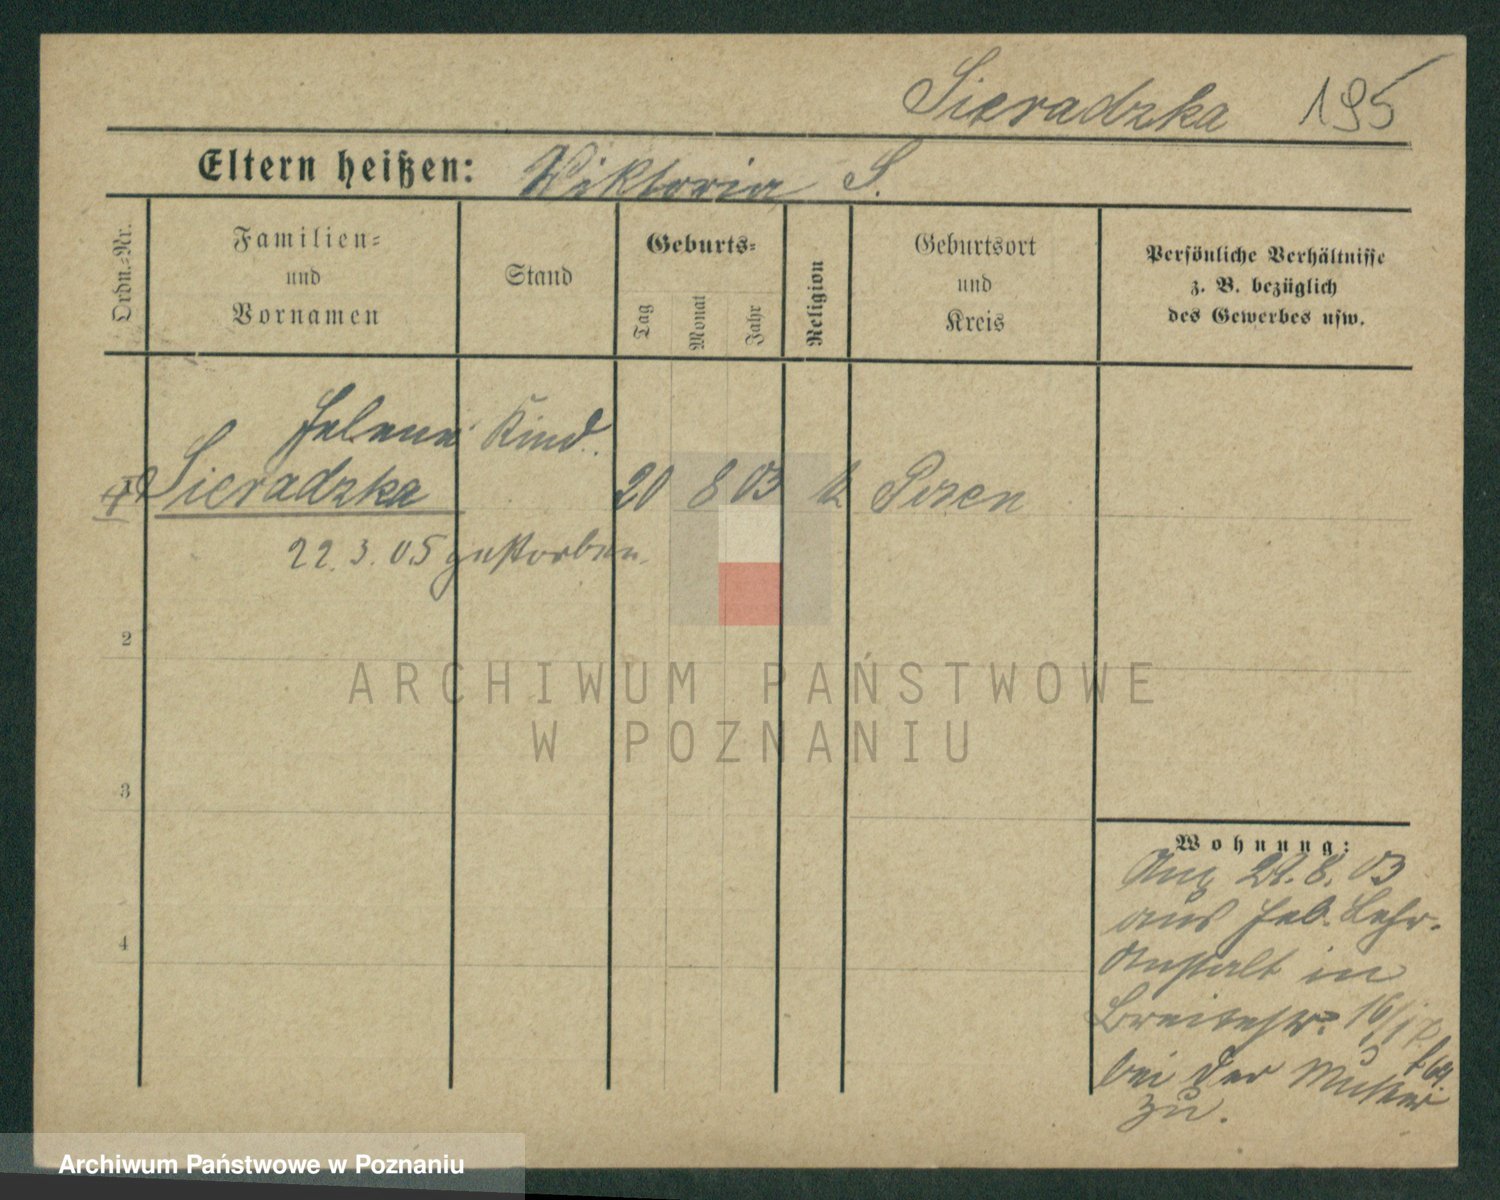 Sieradzka 195
Eltern heißen: Wiktoria S.
Ordn.-Nr.
Familien-
und
Vornamen
Stand
Geburts-
Tag
Monat
Jahr
Religion
Geburtsort
und
Kreis
Persönliche Verhältnisse
z. B. bezüglich
des Gewerbes usw.
Helene Kind.
Sieradzka 20 8 03 k Posen
22.3.05 gestorben.
2
3
4
ARCHIWUM PAŃSTWOWE
W POZNANIU
Wohnung:
Ang 29.8.03
aus Heb. Lehr-
Anstalt in
Breitestr.
bei der Mutter
zu.
Archiwum Państwowe w Poznaniu